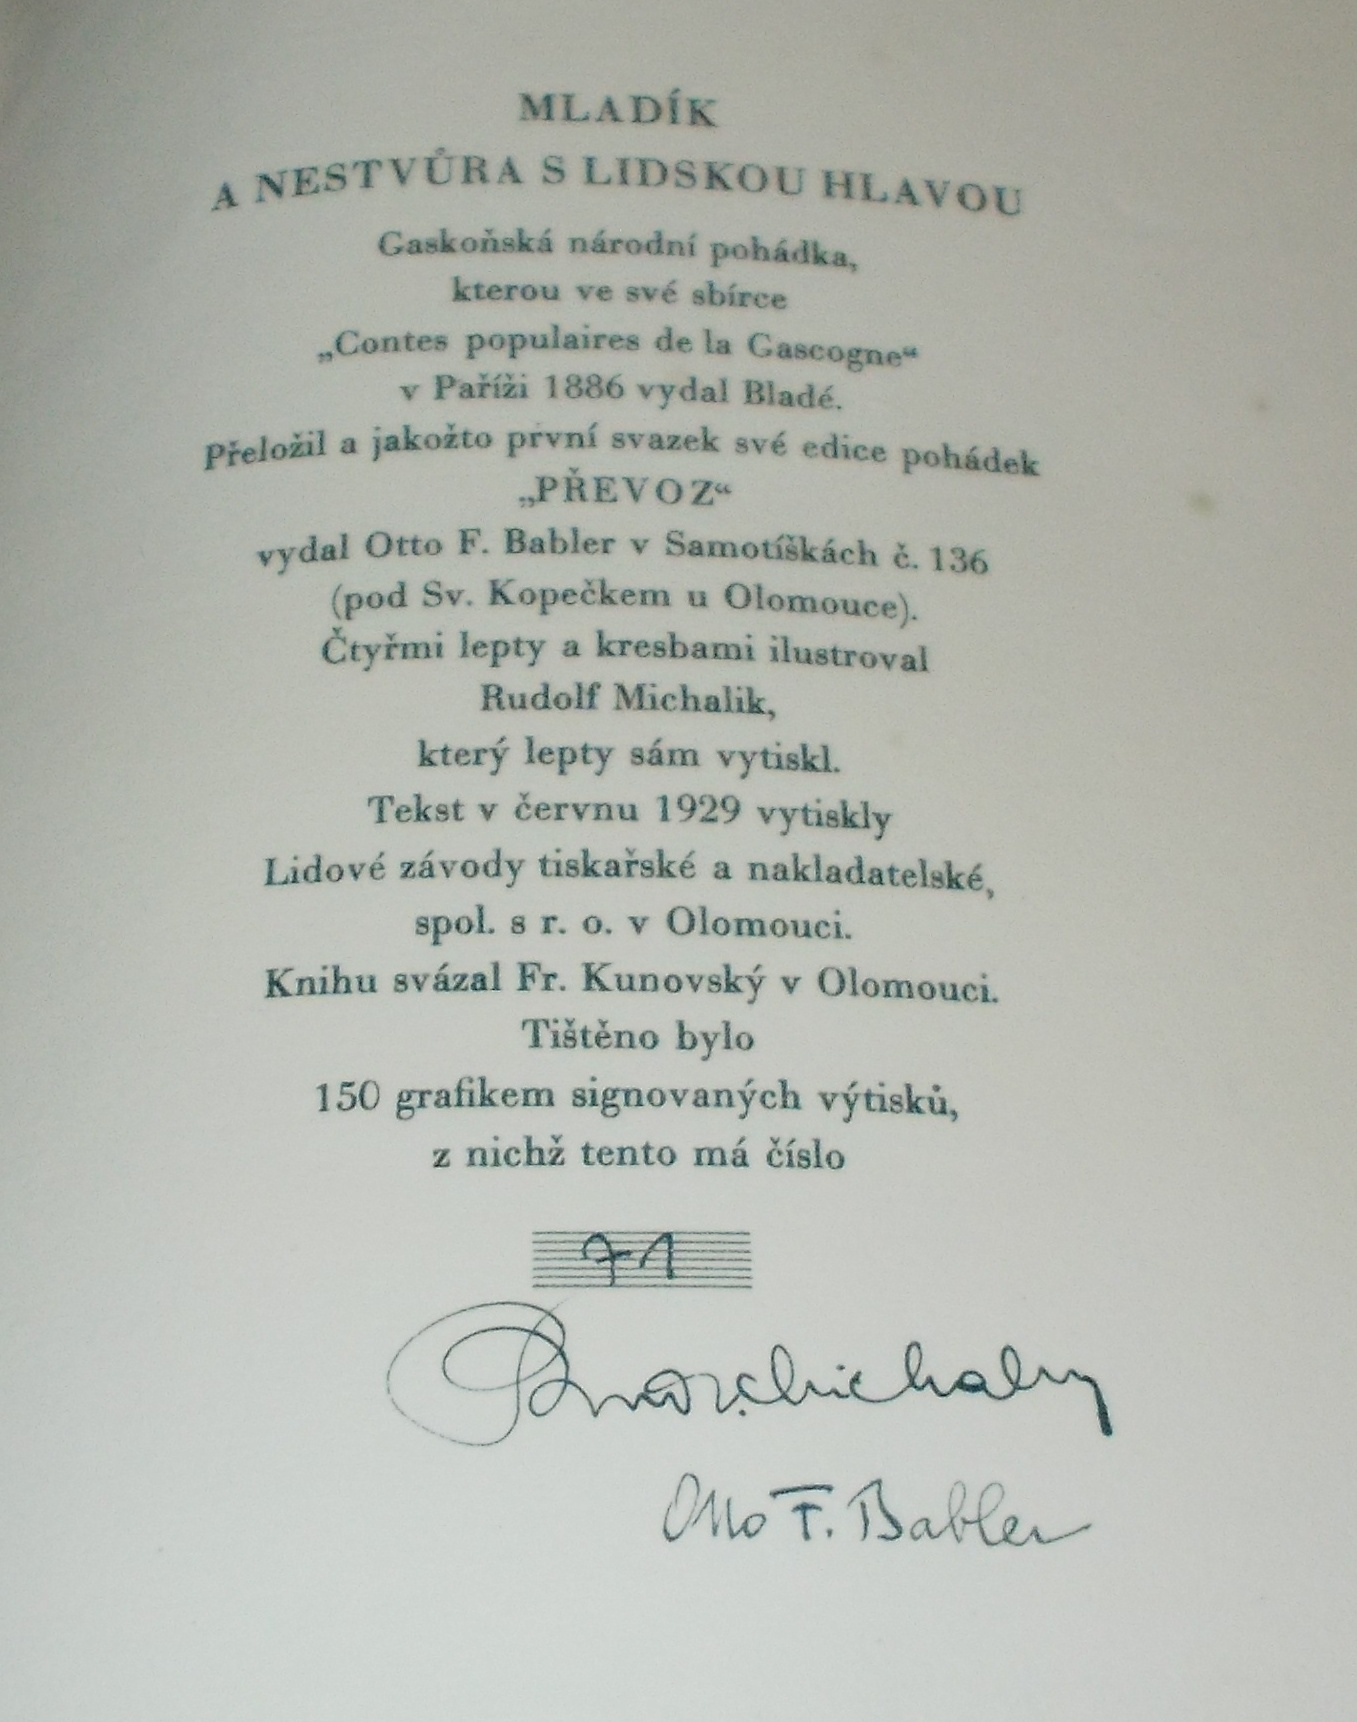 MLADÍK
A NESTVŮRA S LIDSKOU HLAVOU
Gaskoňská národní pohádka,
kterou ve své sbírce
„Contes populaires de la Gascogne“
v Paříži 1886 vydal Bladé.
Přeložil a jakožto první svazek své edice pohádek
„PŘEVOZ“
vydal Otto F. Babler v Samotíškách č. 136
(pod Sv. Kopečkem u Olomouce).
Čtyřmi lepty a kresbami ilustroval
Rudolf Michalik,
který lepty sám vytiskl.
Tekst v červnu 1929 vytiskly
Lidové závody tiskařské a nakladatelské,
spol. s r. o. v Olomouci.
Knihu svázal Fr. Kunovský v Olomouci.
Tištěno bylo
150 grafikem signovaných výtisků,
z nichž tento má číslo
71
Otto F. Babler